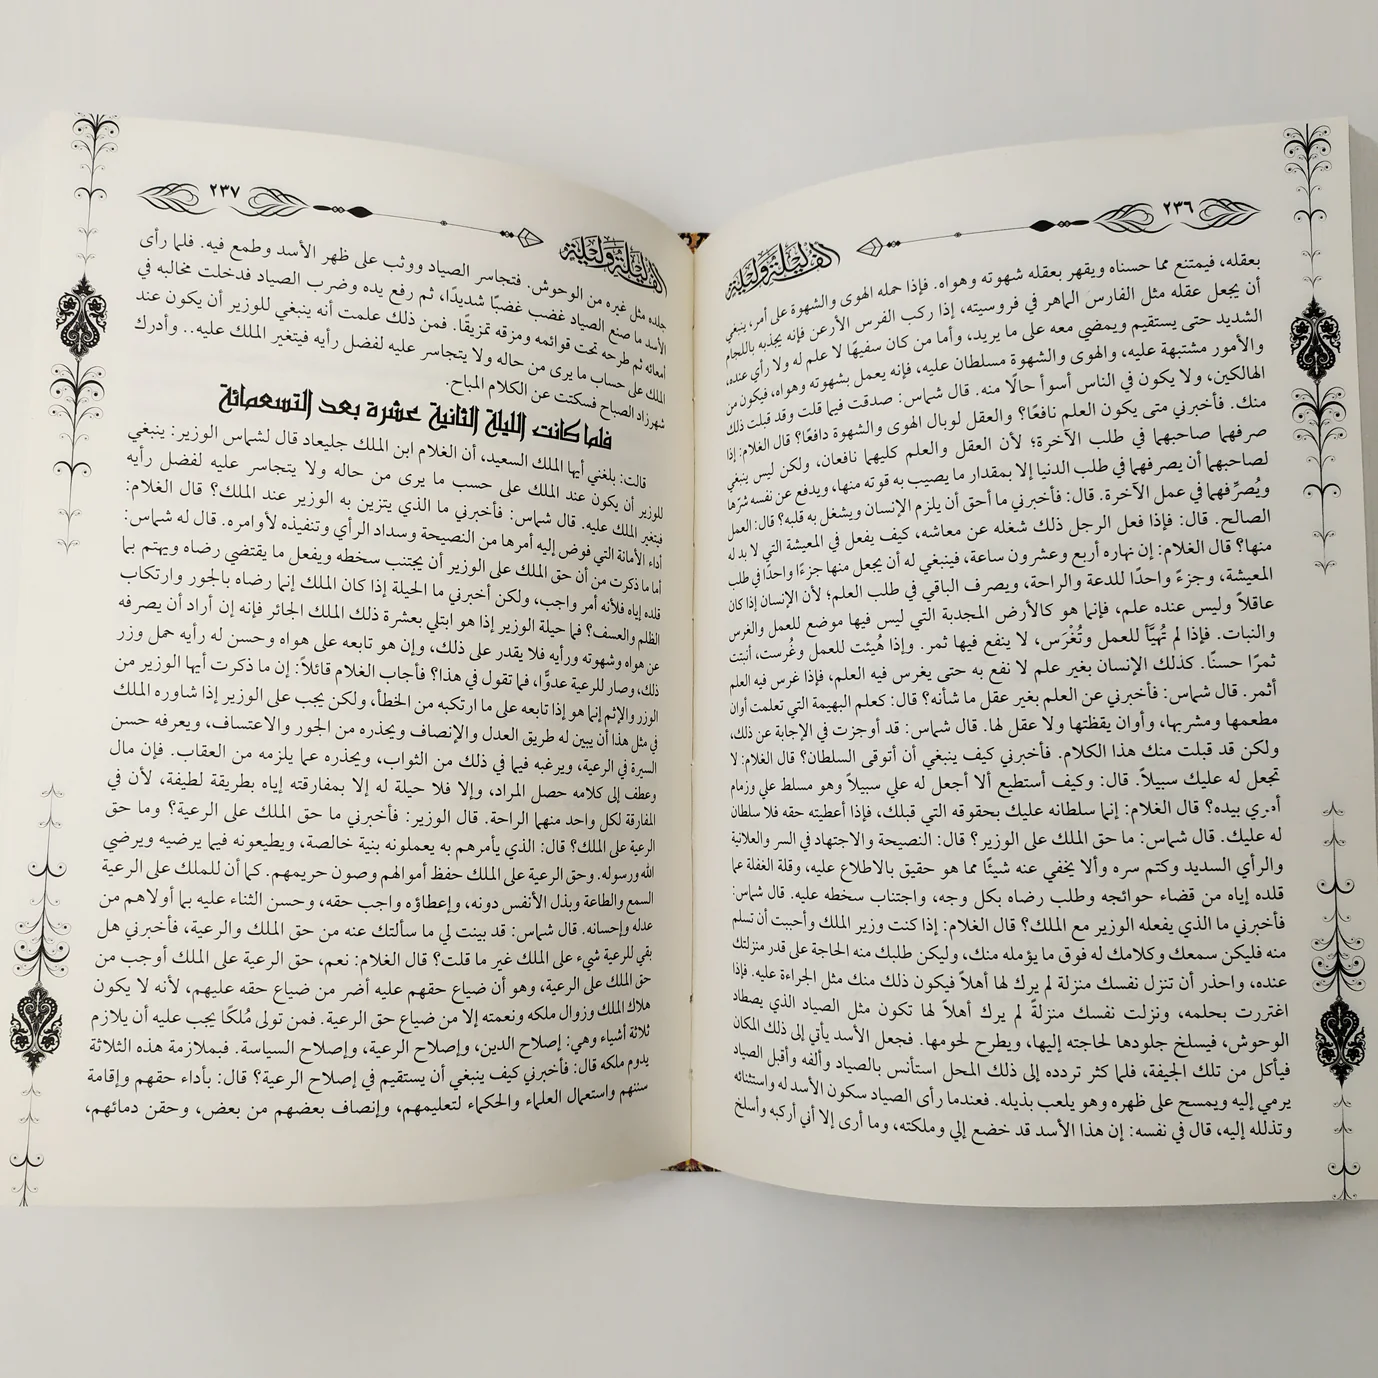 ٢٣٦
ألف ليلة وليلة
بعقله، فيمتنع مما حسناه ويقهر بعقله شهوته وهواه. فإذا حمله الهوى والشهوة على أمر، ينبغي
أن يجعل عقله مثل الفارس الماهر في فروسيته، إذا ركب الفرس الأرعن فإنه يجذبه باللجام
الشديد حتى يستقيم ويمضي معه على ما يريد، وأما من كان سفيهًا لا علم له ولا رأي عنده،
والأمور مشتبهة عليه، والهوى والشهوة مسلطان عليه، فإنه يعمل بشهوته وهواه، فيكون من
الهالكين، ولا يكون في الناس أسوأ حالًا منه. قال شماس: صدقت فيما قلت وقد قبلت ذلك
منك. فأخبرني متى يكون العلم نافعًا؟ والعقل لوبال الهوى والشهوة دافعًا؟ قال الغلام: إذا
صرفهما صاحبهما في طلب الآخرة؛ لأن العقل والعلم كليهما نافعان، ولكن ليس ينبغي
لصاحبهما أن يصرفهما في طلب الدنيا إلا بمقدار ما يصيب به قوته منها، ويدفع عن نفسه شرّها
ويُصرِّفهما في عمل الآخرة. قال: فأخبرني ما أحق أن يلزم الإنسان ويشغل به قلبه؟ قال: العمل
الصالح. قال: فإذا فعل الرجل ذلك شغله عن معاشه، كيف يفعل في المعيشة التي لا بد له
منها؟ قال الغلام: إن نهاره أربع وعشرون ساعة، فينبغي له أن يجعل منها جزءًا واحدًا في طلب
المعيشة، وجزءً واحدًا للدعة والراحة، ويصرف الباقي في طلب العلم؛ لأن الإنسان إذا كان
عاقلاً وليس عنده علم، فإنما هو كالأرض المجدبة التي ليس فيها موضع للعمل والغرس
والنبات. فإذا لم تُهيَّأ للعمل وتُغْرَس، لا ينفع فيها ثمر. وإذا هُيئت للعمل وغُرست، أنبتت
ثمرًا حسنًا. كذلك الإنسان بغير علم لا نفع به حتى يغرس فيه العلم، فإذا غرس فيه العلم
أثمر. قال شماس: فأخبرني عن العلم بغير عقل ما شأنه؟ قال: كعلم البهيمة التي تعلمت أوان
مطعمها ومشربها، وأوان يقظتها ولا عقل لها. قال شماس: قد أوجزت في الإجابة عن ذلك،
ولكن قد قبلت منك هذا الكلام. فأخبرني كيف ينبغي أن أتوقى السلطان؟ قال الغلام: لا
تجعل له عليك سبيلاً. قال: وكيف أستطيع ألا أجعل له علي سبيلاً وهو مسلط علي وزمام
أمري بيده؟ قال الغلام: إنما سلطانه عليك بحقوقه التي قبلك، فإذا أعطيته حقه فلا سلطان
له عليك. قال شماس: ما حق الملك على الوزير؟ قال: النصيحة والاجتهاد في السر والعلانية
والرأي السديد وكتم سره وألا يخفي عنه شيئًا مما هو حقيق بالاطلاع عليه، وقلة الغفلة عما
قلده إياه من قضاء حوائجه وطلب رضاه بكل وجه، واجتناب سخطه عليه. قال شماس:
فأخبرني ما الذي يفعله الوزير مع الملك؟ قال الغلام: إذا كنت وزير الملك وأحببت أن تسلم
منه فليكن سمعك وكلامك له فوق ما يؤمله منك، وليكن طلبك منه الحاجة على قدر منزلتك
عنده، واحذر أن تنزل نفسك منزلة لم يرك لها أهلاً فيكون ذلك منك مثل الجراءة عليه. فإذا
اغتررت بحلمه، ونزلت نفسك منزلةً لم يرك أهلاً لها تكون مثل الصياد الذي يصطاد
الوحوش، فيسلخ جلودها لحاجته إليها، ويطرح لحومها. فجعل الأسد يأتي إلى ذلك المكان
فيأكل من تلك الجيفة، فلما كثر تردده إلى ذلك المحل استأنس بالصياد وألفه وأقبل الصياد
يرمي إليه ويمسح على ظهره وهو يلعب بذيله. فعندما رأى الصياد سكون الأسد له واستئناثه
وتذلله إليه، قال في نفسه: إن هذا الأسد قد خضع إلي وملكته، وما أرى إلا أني أركبه وأسلخ
٢٣٧
ألف ليلة وليلة
جلده مثل غيره من الوحوش. فتجاسر الصياد ووثب على ظهر الأسد وطمع فيه. فلما رأى
الأسد ما صنع الصياد غضب غضبًا شديدًا، ثم رفع يده وضرب الصياد فدخلت مخالبه في
أمعائه ثم طرحه تحت قوائمه ومزقه تمزيقًا. فمن ذلك علمت أنه ينبغي للوزير أن يكون عند
الملك على حساب ما يرى من حاله ولا يتجاسر عليه لفضل رأيه فيتغير الملك عليه.. وأدرك
شهرزاد الصباح فسكتت عن الكلام المباح.
فلما كانت الليلة الثانية عشرة بعد التسعمائة
قالت: بلغني أيها الملك السعيد، أن الغلام ابن الملك جليعاد قال لشماس الوزير: ينبغي
للوزير أن يكون عند الملك على حسب ما يرى من حاله ولا يتجاسر عليه لفضل رأيه
فيتغير الملك عليه. قال شماس: فأخبرني ما الذي يتزين به الوزير عند الملك؟ قال الغلام:
أداء الأمانة التي فوض إليه أمرها من النصيحة وسداد الرأي وتنفيذه لأوامره. قال له شماس:
أما ما ذكرت من أن حق الملك على الوزير أن يجتنب سخطه ويفعل ما يقتضي رضاه ويهتم بما
قلده إياه فلأنه أمر واجب، ولكن أخبرني ما الحيلة إذا كان الملك إنما رضاه بالجور وارتكاب
الظلم والعسف؟ فما حيلة الوزير إذا هو ابتلي بعشرة ذلك الملك الجائر فإنه إن أراد أن يصرفه
عن هواه وشهوته ورأيه فلا يقدر على ذلك، وإن هو تابعه على هواه وحسن له رأيه حمل وزر
ذلك، وصار للرعية عدوًّا، فما تقول في هذا؟ فأجاب الغلام قائلاً: إن ما ذكرت أيها الوزير من
الوزر والإثم إنما هو إذا تابعه على ما ارتكبه من الخطأ، ولكن يجب على الوزير إذا شاوره الملك
في مثل هذا أن يبين له طريق العدل والإنصاف ويحذره من الجور والاعتساف، ويعرفه حسن
السيرة في الرعية، ويرغبه فيما في ذلك من الثواب، ويحذره عما يلزمه من العقاب. فإن مال
وعطف إلى كلامه حصل المراد، وإلا فلا حيلة له إلا بمفارقته إياه بطريقة لطيفة، لأن في
المفارقة لكل واحد منهما الراحة. قال الوزير: فأخبرني ما حق الملك على الرعية؟ وما حق
الرعية على الملك؟ قال: الذي يأمرهم به يعملونه بنية خالصة، ويطيعونه فيما يرضيه ويرضي
الله ورسوله. وحق الرعية على الملك حفظ أموالهم وصون حريمهم. كما أن للملك على الرعية
السمع والطاعة وبذل الأنفس دونه، وإعطاؤه واجب حقه، وحسن الثناء عليه بما أولاهم من
عدله وإحسانه. قال شماس: قد بينت لي ما سألتك عنه من حق الملك والرعية، فأخبرني هل
بقي للرعية شيء على الملك غير ما قلت؟ قال الغلام: نعم، حق الرعية على الملك أوجب من
حق الملك على الرعية، وهو أن ضياع حقهم عليه أضر من ضياع حقه عليهم، لأنه لا يكون
هلاك الملك وزوال ملكه ونعمته إلا من ضياع حق الرعية. فمن تولى مُلكًا يجب عليه أن يلازم
ثلاثة أشياء وهي: إصلاح الدين، وإصلاح الرعية، وإصلاح السياسة. فبملازمة هذه الثلاثة
يدوم ملكه قال: فأخبرني كيف ينبغي أن يستقيم في إصلاح الرعية؟ قال: بأداء حقهم وإقامة
سننهم واستعمال العلماء والحكماء لتعليمهم، وإنصاف بعضهم من بعض، وحقن دمائهم،